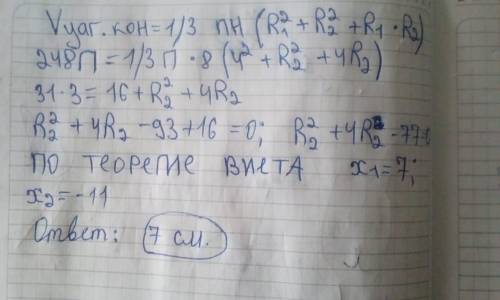 Vуаг.кон = 1/3 ПН (R₁² + R₂² + R₁ · R₂)
248П = 1/3 П · 8 (4² + R₂² + 4R₂)
31 · 3 = 16 + R₂² + 4R₂
R₂² + 4R₂ - 93 + 16 = 0; R₂² + 4R₂ - 77=0
ПО ТЕОРЕМЕ ВИЕТА x₁ = 7;
x₂ = -11
Ответ: 7 см.